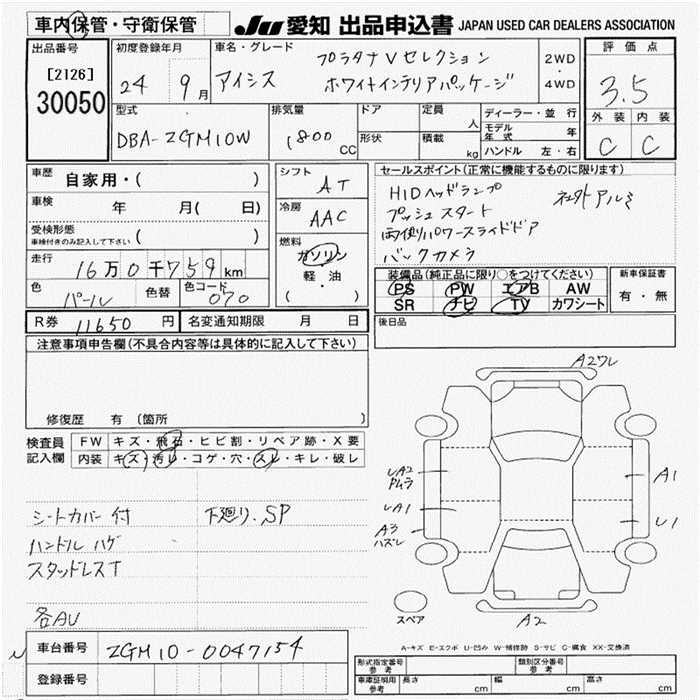 車内保管・守衛保管 JU 愛知 出品申込書 JAPAN USED CAR DEALERS ASSOCIATION
出品番号
[2126]
30050
初度登録年月
24 9月
車名・グレード
アイシス
プラタナ Vセレクション
ホワイトインテリアパッケージ
2WD
・
4WD
評価点
3.5
外装 内装
C C
型式
DBA-ZGM10W
排気量
1800 CC
ドア
形状
定員 人
積載 kg
ディーラー・並行
モデル年式 年
ハンドル 左・右
車歴 自家用・( )
車検 年 月( 日)
受検形態
車検付きのみ記入して下さい ( )
走行
16万0千759km
色 パール
色替
色コード 070
シフト
AT
冷房
AAC
燃料
ガソリン
軽・油
( )
セールスポイント(正常に機能するものに限ります)
HIDヘッドランプ 社外アルミ
プッシュスタート
両側パワースライドドア
バックカメラ
装備品(純正品に限り○をつけてください)
PS PW エアB AW
SR ナビ TV カワシート
新車保証書
有・無
R券 11650円
名変通知期限 月 日
後日品
注意事項申告欄(不具合内容等は具体的に記入して下さい)
修復歴 有 〔箇所 〕
検査員記入欄
FW キズ・飛石・ヒビ割・リペア跡・X要
内装 キズ・汚レ・コゲ・穴・スレ・キレ・破レ
シートカバー付 下廻り.SP
ハンドル ハゲ
スタッドレスT
各AU
A2ワレ
UA2
UA1
A3
ハズレ
A1
U1
スペア
A2
A-キズ E-エクボ U-凹み W-補修跡 S-サビ C-腐食 XX-交換済
車台番号 ZGM10-0047154
登録番号
形式指定番号
参考
類別区分番号
参考
車庫証明用
参考
長さ cm 幅 cm 高さ cm